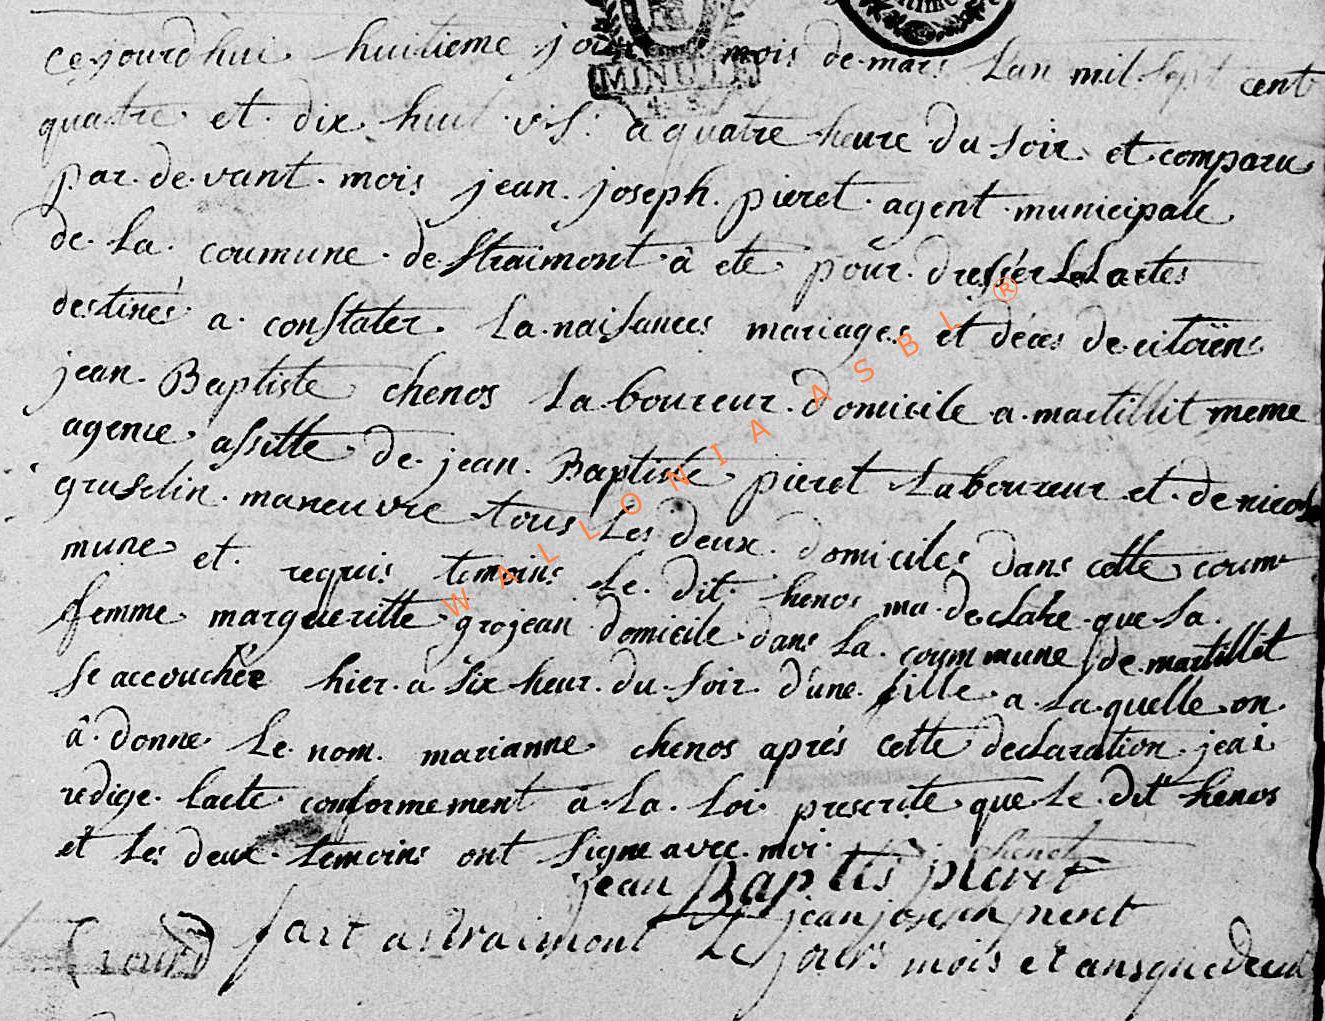 MINUTE
cejourdhui huitieme jour mois de mars Lan mil sept cent
quatre et dix huit v.s. a quatre heure du soir et comparu
par de vant mois jean joseph pieret agent municipale
de La coumune de Straimont â ete pour dresser Lartes
destinés a constater La naisances mariages et déces de citoïens
jean Baptiste chenos Laboureur domicile a martillit meme
agence assitte de jean Baptiste pieret Laboureur et de nicolas
gruselin maneuvre tous Les deux domiciles dans cette coum
mune et requis temoins Le dit henos ma declare que sa
femme margueritte grojean domicile dans La coymmune de martillit
se accouchée hier a six heur du soir d'une fille a La quelle on
â donne Le nom marianne chenos aprés cette declaration jeai
redige lacte conformement a La Loi prescrite que Le dit henos
et Les deux temoins ont signe avec moi
chenot
jean Baptis pieret
jean joseph pieret
fart a straimont Le jours mois et ans que deсu
WALLONIA ASBL ®